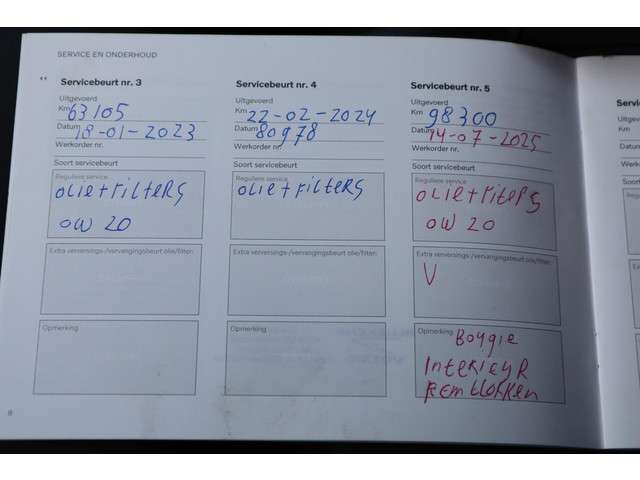 SERVICE EN ONDERHOUD
Servicebeurt nr. 3
Uitgevoerd
Km 63105
Datum 18-01-2023
Werkorder nr.
Soort servicebeurt
Reguliere service
OLIE+FILTERS
OW 20
Extra verversings-/vervangingsbeurt olie/filter:
Opmerking
Servicebeurt nr. 4
Uitgevoerd
Km 22-02-2024
Datum 80978
Werkorder nr.
Soort servicebeurt
Reguliere service
OLIE+FILTERS
Extra verversings-/vervangingsbeurt olie/filter:
Opmerking
Servicebeurt nr. 5
Uitgevoerd
Km 98300
Datum 14-07-2025
Werkorder nr.
Soort servicebeurt
Reguliere service
OLIE+FILTERS
OW 20
Extra verversings-/vervangingsbeurt olie/filter:
V
Opmerking Bougie
Interieur
Remblokken
8